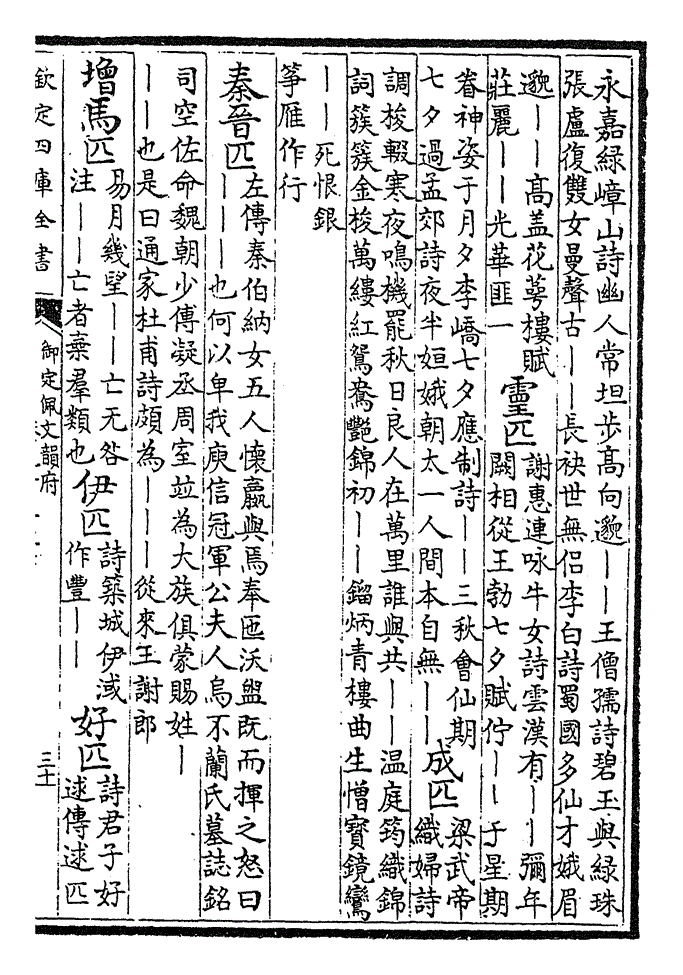 永嘉綠嶂山詩幽人常坦步高向邈——王僧孺詩碧玉與綠珠
張盧復雙女曼聲古——長袂世無侶李白詩蜀國多仙才娥眉
邈——高盖花萼樓賦
莊麗——光華匪一
靈匹
謝惠連咏牛女詩雲漢有——彌年
闕相從王勃七夕賦佇——于星期
眷神姿于月夕李嶠七夕應制詩——三秋會仙期
七夕過孟郊詩夜半姮娥朝太一人間本自無——
成匹
梁武帝
織婦詩
調梭輟寒夜鳴機罷秋日良人在萬里誰與共——温庭筠織錦
詞簇簇金梭萬縷紅鴛鴦艷錦初——鎦炳青樓曲生憎寶鏡鸞
——死恨銀
箏雁作行
秦晉匹
左傳秦伯納女五人懷嬴與焉奉匜沃盥既而揮之怒曰
——也何以卑我庾信冠軍公夫人烏不蘭氏墓誌銘
司空佐命魏朝少傅凝丞周室並為大族俱蒙賜姓—
——也是曰通家杜甫詩頗為———從來王謝郎
增馬匹
易月幾望——亡无咎
注——亡者棄羣類也
伊匹
詩築城伊淢
作豐——
好匹
詩君子好
逑傳逑匹
欽定四庫全書
御定佩文韻府
三十